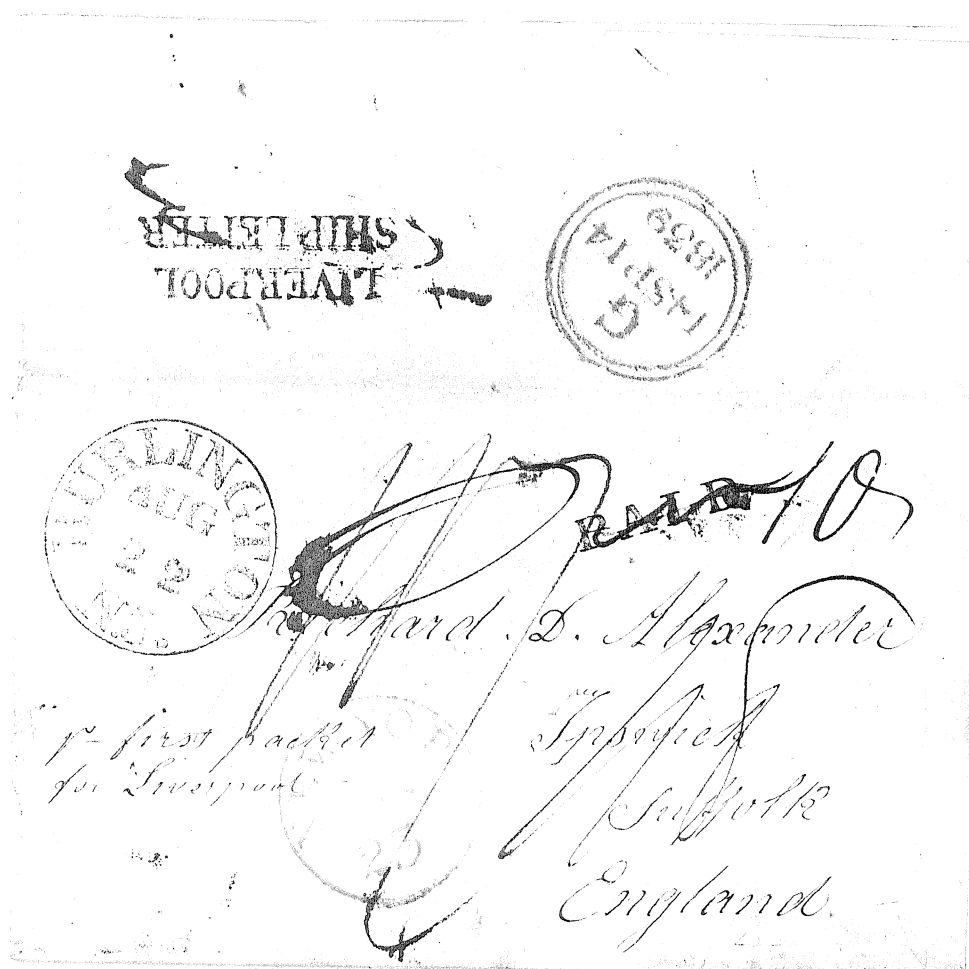 LIVERPOOL
SHIP LETTER
G
14 SP 14
1839
BURLINGTON
AUG
22
N.J.
PAID
10
Richard D. Alexander
Ipswich
Suffolk
England
pr first packet
for Liverpool